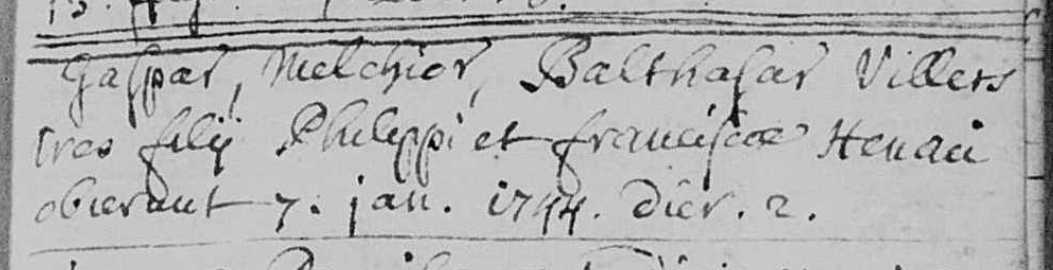 Gaspar, Melchior, Balthasar Villers
tres filij Philippi et franciscae Henau
obierunt 7. jan. 1744. dier. 2.